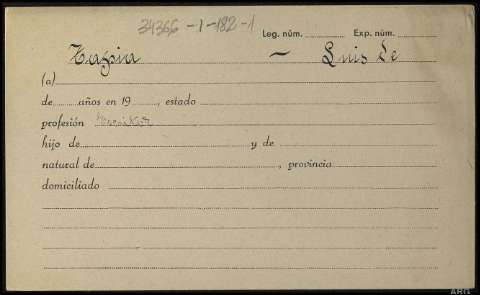 34366 - 1 - 182 - 1
Leg. núm. Exp. núm.
Tapia — Luis de
(a)
de años en 19 , estado
profesión Escritor
hijo de y de
natural de , provincia
domiciliado